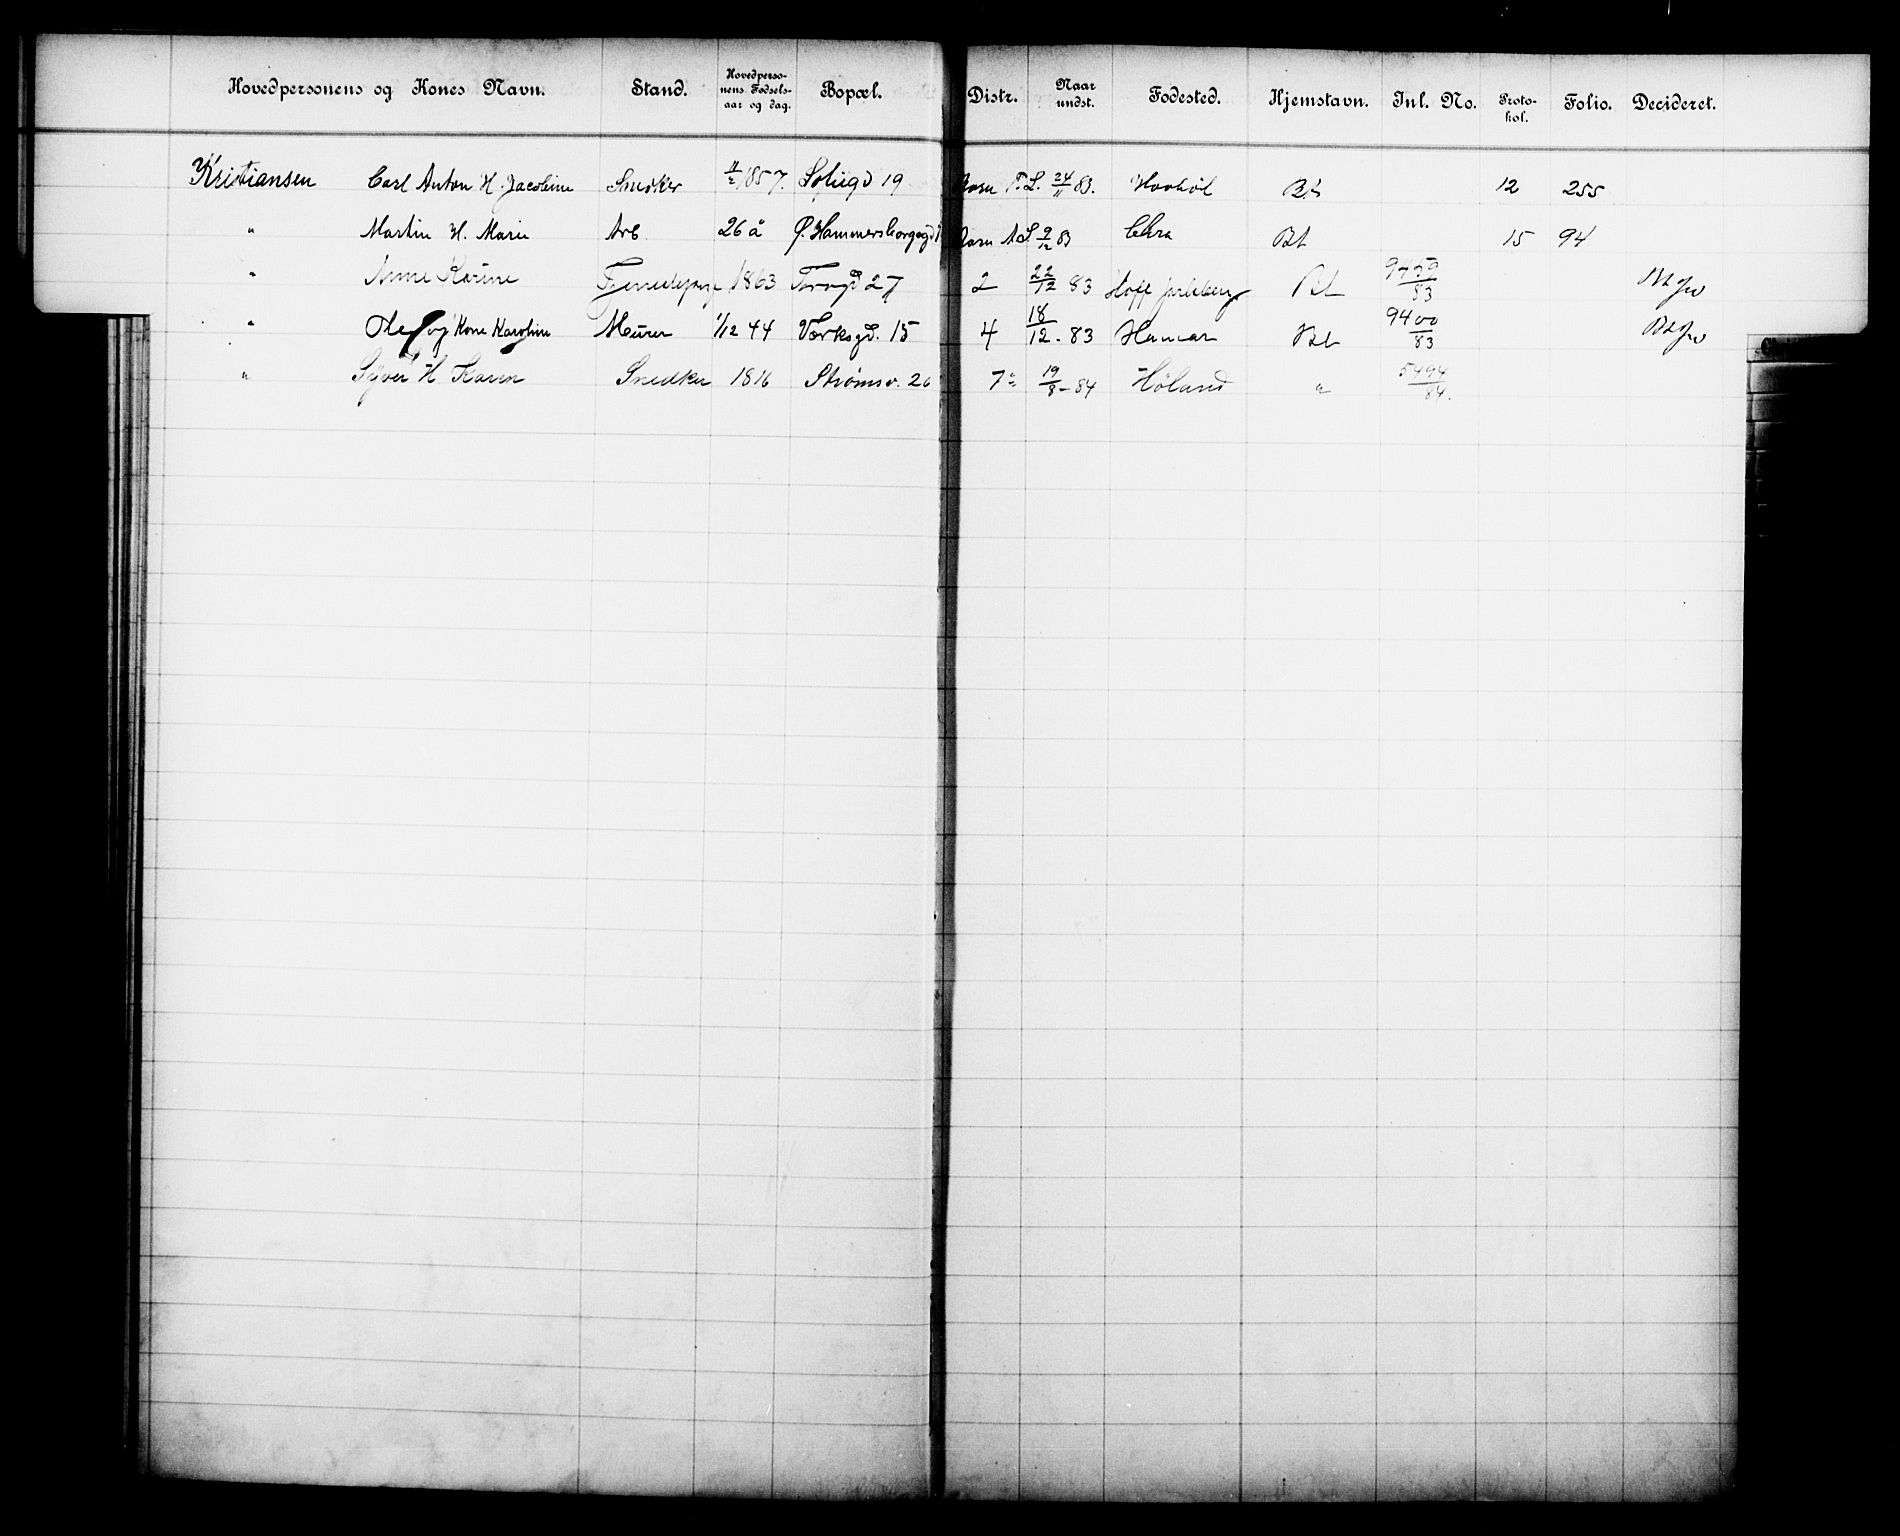 Hovedpersonens og Kones Navn. Stand. Hovedpersonens Fødselsaar og dag. Bopæl. Distr. Naar undst. Fødested. Hjemstavn. Inl. No. Protokol. Folio. Decideret.
Kristiansen Carl Anton H. Jacobine Snedker 11/2 1857. Soliegd 19 24/11 83. Bt 12 255
" Martin H. Marie Arb 26 å Ø. Hammersborggd 9/12 83 Chra Bt 15 94
" Anne Karine Tjenestepige 1863 Torvgd 27 2 22/12 83 Hoff Jarlsberg Bt 9459/83
" Ole og Kone Karoline Murer 1/12 44 Værksgd. 15 4 18/12 - 83 Hamar Bt 9400/83
" Syver H Karen Snedker 1816 Strømsv. 26 7 19/8 - 84 Höland " 5494/84.